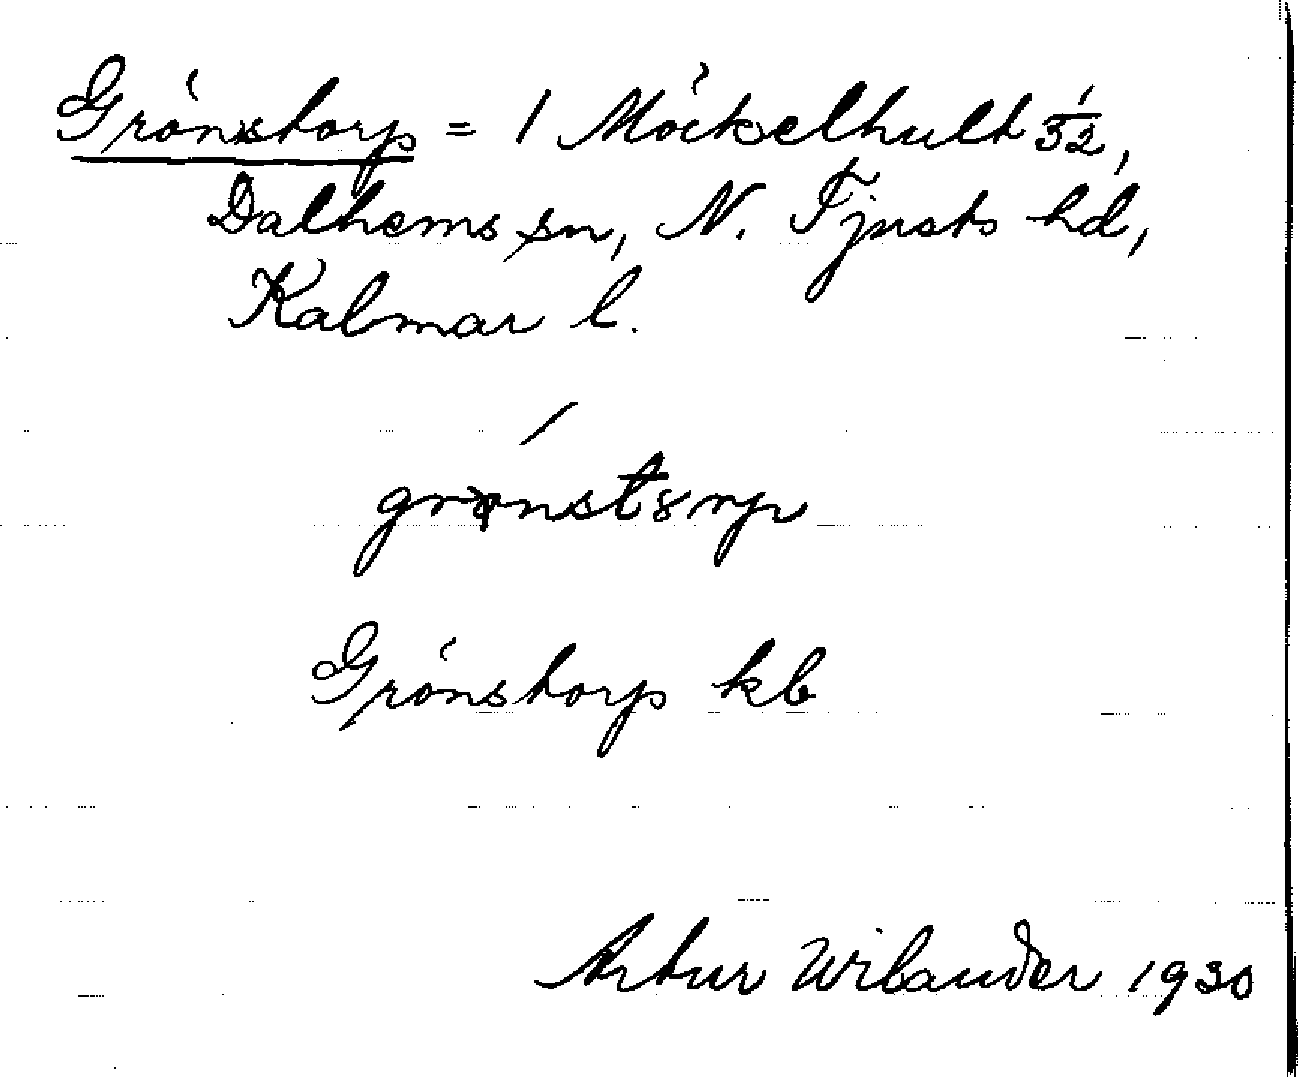 Grönstorp = 1 Möckelhult 1/32,
Dalhems sn, N. Tjusts hd,
Kalmar l.
Grönstorp kb
Artur Wilander 1930